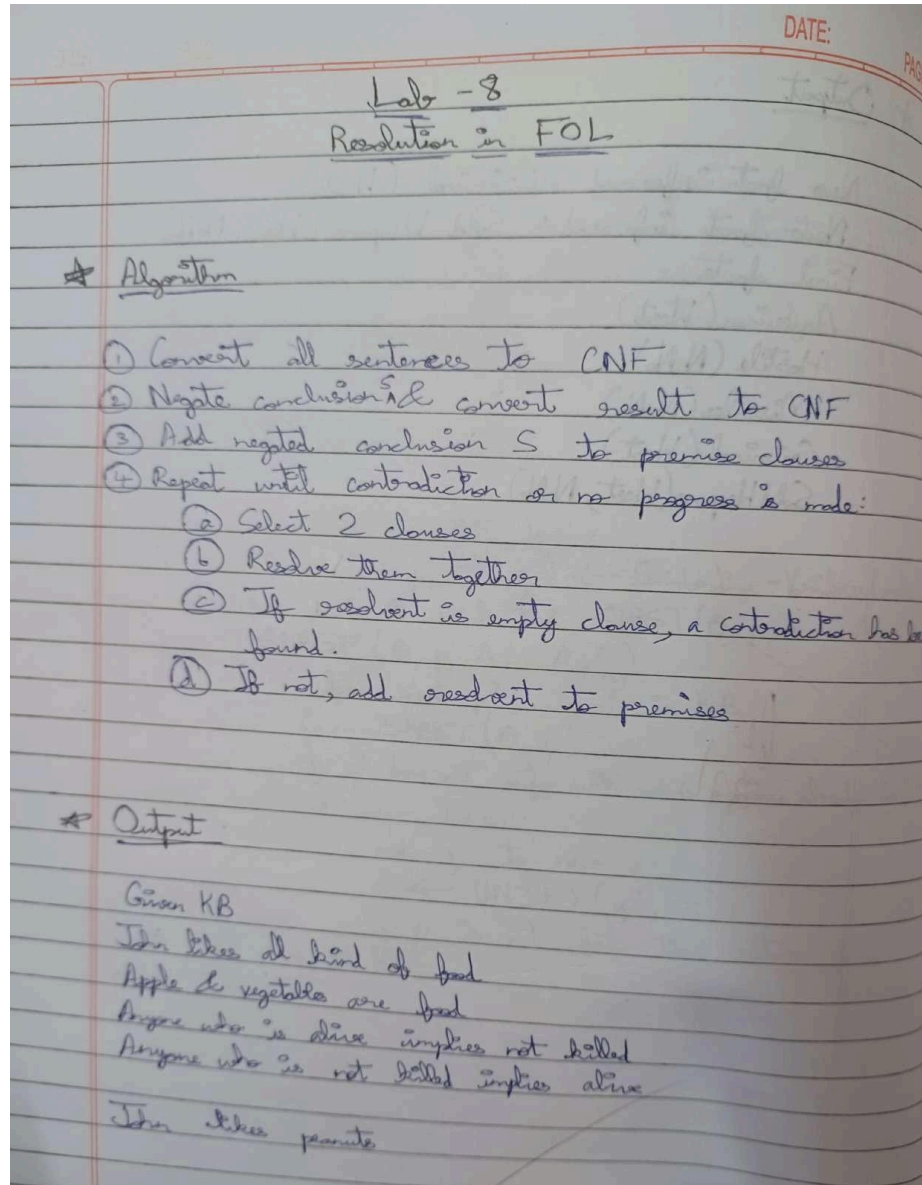 DATE:
PAG
Lab - 8
Resolution in FOL
Algorithm
① Convert all sentences to CNF
② Negate conclusion S & convert result to CNF
③ Add negated conclusion S to premise clauses
④ Repeat until contradiction or no progress is made:
ⓐ Select 2 clauses
ⓑ Resolve them together
ⓒ If resolvent is empty clause, a contradiction has be
found.
ⓓ If not, add resolvent to premises
Output
Given KB
John likes all kind of food
Apple & vegetables are food
Anyone who is alive implies not killed
Anyone who is not killed implies alive
John likes peanuts